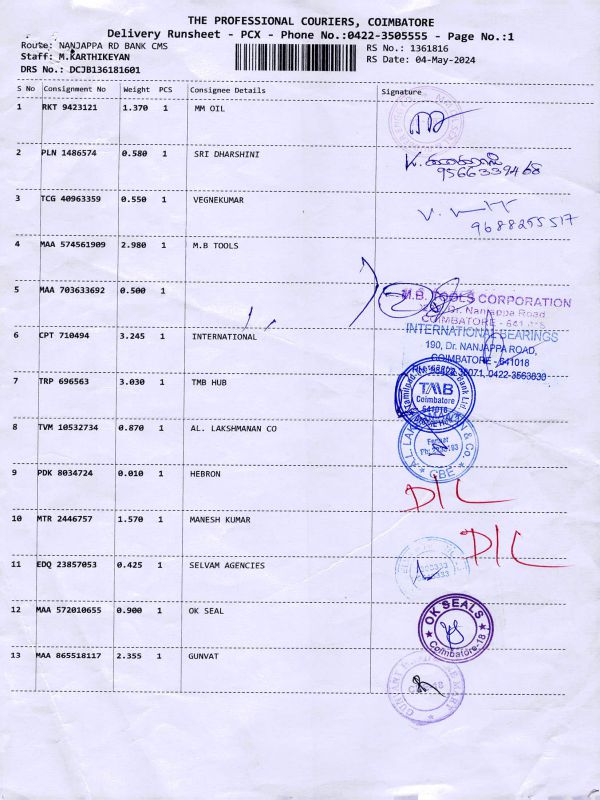 THE PROFESSIONAL COURIERS, COIMBATORE
Delivery Runsheet - PCX - Phone No.:0422-3505555 - Page No.:1
Route: NANJAPPA RD BANK CMS
RS No.: 1361816
Staff: M.KARTHIKEYAN
RS Date: 04-May-2024
DRS No.: DCJB136181601
S No Consignment No Weight PCS Consignee Details Signature
1 RKT 9423121 1.370 1 MM OIL
2 PLN 1486574 0.580 1 SRI DHARSHINI
9566339468
3 TCG 40963359 0.550 1 VEGNEKUMAR
9688255517
4 MAA 574561909 2.980 1 M.B TOOLS
5 MAA 703633692 0.500 1
M.B. TOOLS CORPORATION
Dr. Nanjappa Road
COIMBATORE - 641
6 CPT 710494 3.245 1 INTERNATIONAL
INTERNATIONAL BEARINGS
190, Dr. NANJAPPA ROAD,
COIMBATORE - 641018
0422-3563830
7 TRP 696563 3.030 1 TMB HUB
TMB
Coimbatore
641018
8 TVM 10532734 0.870 1 AL. LAKSHMANAN CO
& CO.
CBE
9 PDK 8034724 0.010 1 HEBRON
D/L
10 MTR 2446757 1.570 1 MANESH KUMAR
D/L
11 EDQ 23857053 0.425 1 SELVAM AGENCIES
12 MAA 572010655 0.900 1 OK SEAL
OK SEALS
Coimbatore-18
13 MAA 865518117 2.355 1 GUNVAT